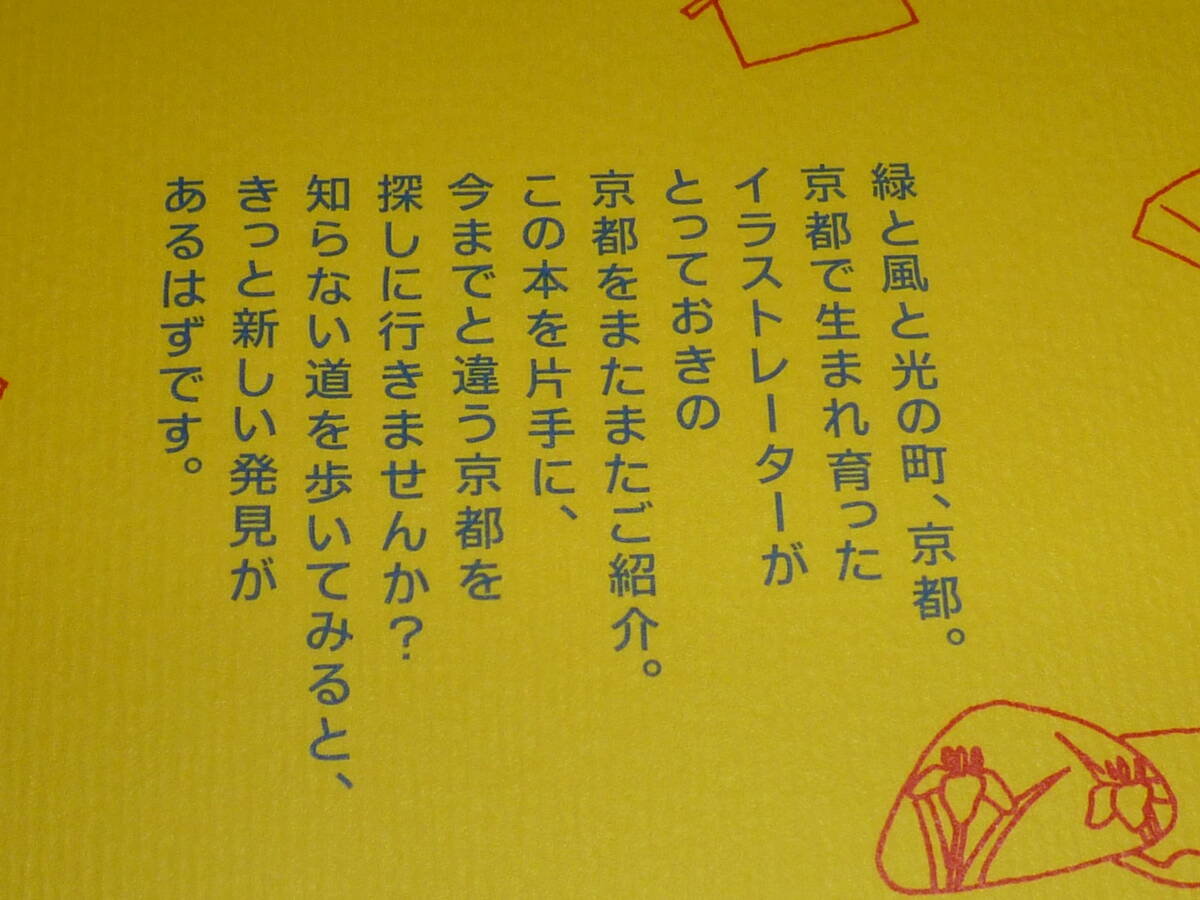 緑と風と光の町、京都。
京都で生まれ育った
イラストレーターが
とっておきの
京都をまたまたご紹介。
この本を片手に、
今までと違う京都を
探しに行きませんか?
知らない道を歩いてみると、
きっと新しい発見が
あるはずです。